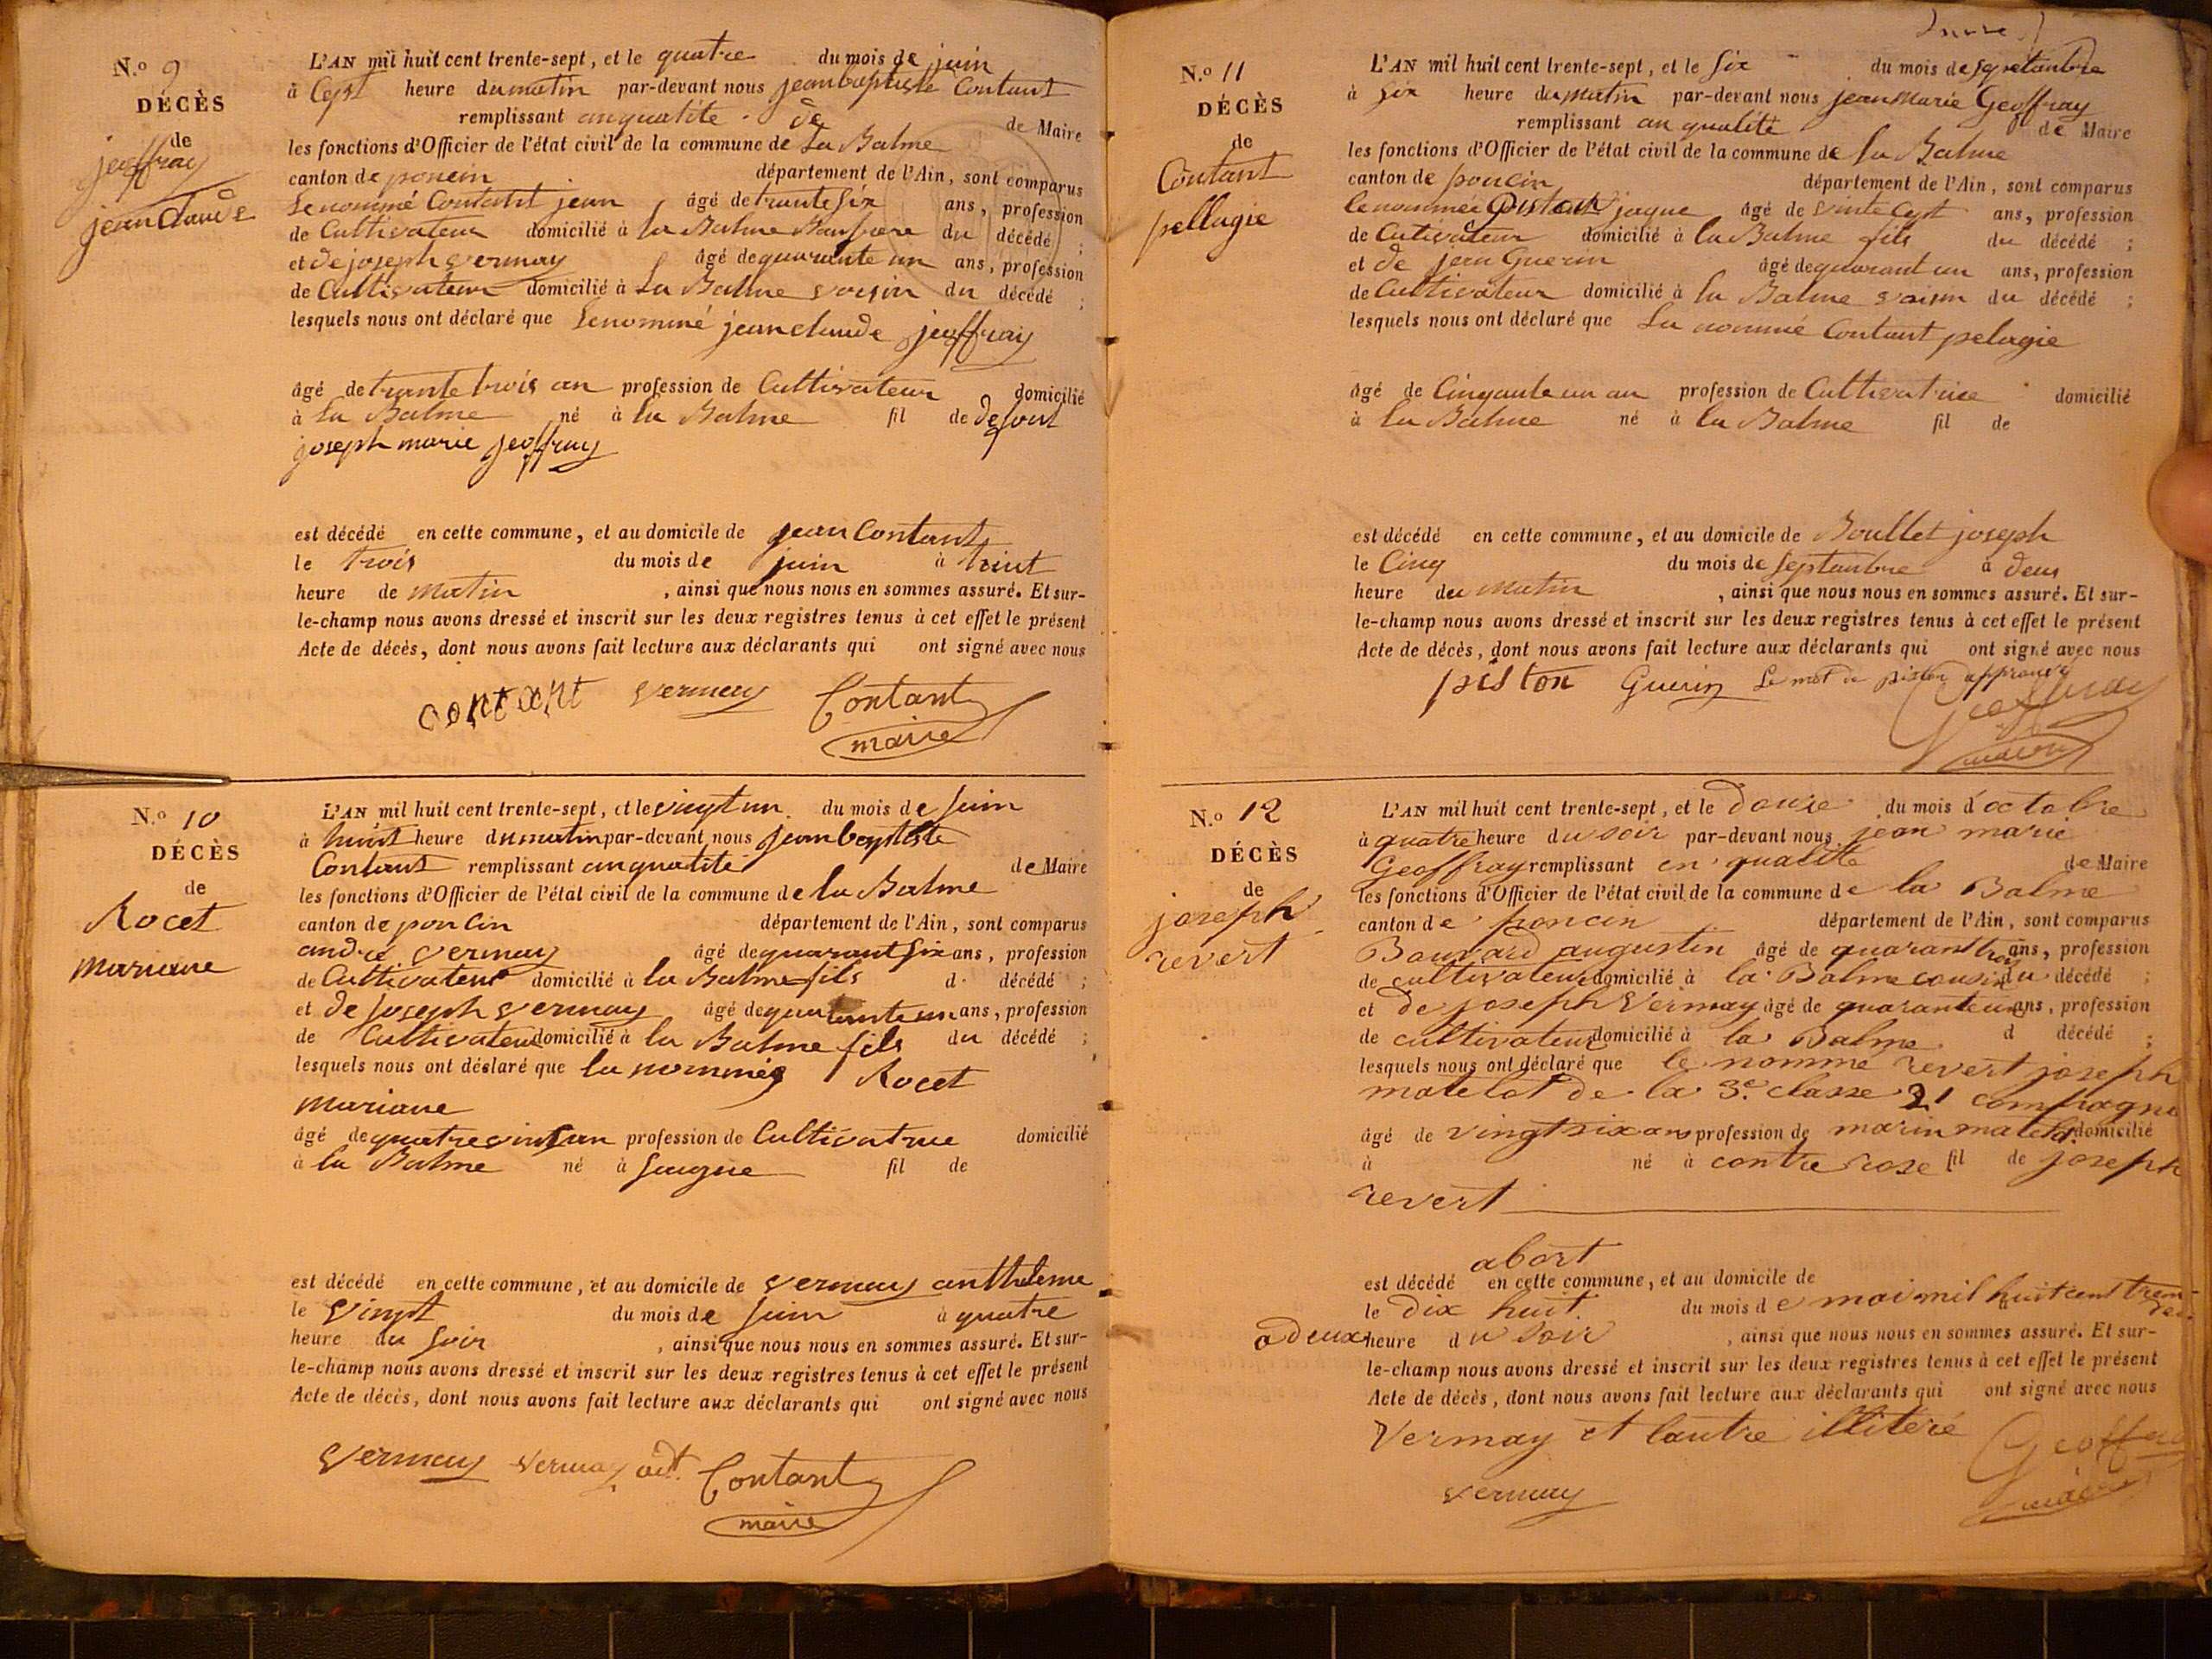 N.º 9
DÉCÈS
de
jeoffray
jean Claude
L'AN mil huit cent trente-sept, et le quatre du mois de juin
à Cept heure du matin par-devant nous jean baptiste Contant
remplissant an qualité de de Maire
les fonctions d'Officier de l'état civil de la commune de La Balme
canton de poncin département de l'Ain, sont comparus
Le nommé Contant jean âgé de trante six ans, profession
de Cultivateur domicilié à la Balme du décédé ;
et de joseph vermay âgé de quarante un ans, profession
de Cultivateur domicilié à La Balme voisin du décédé ;
lesquels nous ont déclaré que Le nommé jean claude jeoffray
âgé de trante trois an profession de Cultivateur domicilié
à La Balme né à la Balme fil de defout
joseph marie jeoffray
est décédé en cette commune, et au domicile de jean Contant
le trois du mois de juin à
heure de matin , ainsi que nous nous en sommes assuré. Et sur-
le-champ nous avons dressé et inscrit sur les deux registres tenus à cet effet le présent
Acte de décès, dont nous avons fait lecture aux déclarants qui ont signé avec nous
contant vermay Contant
maire
N.º 10
DÉCÈS
de
Rocet
mariane
L'AN mil huit cent trente-sept, et le vingt un du mois de juin
à huit heure du matin par-devant nous jean baptiste
Contant remplissant an qualité de Maire
les fonctions d'Officier de l'état civil de la commune de la Balme
canton de poncin département de l'Ain, sont comparus
andré vermay âgé de quarant six ans, profession
de Cultivateur domicilié à la Balme fils d décédé ;
et de joseph vermay âgé de quarante un ans, profession
de Cultivateur domicilié à la Balme fils du décédé ;
lesquels nous ont déclaré que la nommeé Rocet
mariane
âgé de quatre vint an profession de Cultivatrice domicilié
à la Balme né à fil de
est décédé en cette commune, et au domicile de vermay antheleme
le vingt du mois de juin à quatre
heure du soir , ainsi que nous nous en sommes assuré. Et sur-
le-champ nous avons dressé et inscrit sur les deux registres tenus à cet effet le présent
Acte de décès, dont nous avons fait lecture aux déclarants qui ont signé avec nous
vermay vermay Contant
maire
N.º 11
DÉCÈS
de
Contant
pellagie
L'AN mil huit cent trente-sept, et le six du mois de
à six heure du matin par-devant nous jean marie Geoffray
remplissant an qualité de Maire
les fonctions d'Officier de l'état civil de la commune de la Balme
canton de poncin département de l'Ain, sont comparus
le nommée piston jaque âgé de vinte cept ans, profession
de Cutivateur domicilié à la Balme fils du décédé ;
et de jean Guerin âgé de quarant un ans, profession
de Cultivateur domicilié à la Balme voisin du décédé ;
lesquels nous ont déclaré que La nommé Contant pelagie
âgé de Cinqante un an profession de Cultivatrice domicilié
à la Balme né à la Balme fil de
est décédé en cette commune, et au domicile de Boullet joseph
le Cinq du mois de septanbre à deus
heure du matin , ainsi que nous nous en sommes assuré. Et sur-
le-champ nous avons dressé et inscrit sur les deux registres tenus à cet effet le présent
Acte de décès, dont nous avons fait lecture aux déclarants qui ont signé avec nous
piston Guerin Le mot de piston approuvé
Geoffray
maire
N.º 12
DÉCÈS
de
joseph
revert
L'AN mil huit cent trente-sept, et le douze du mois d'octobre
à quatre heure du soir par-devant nous jean marie
Geoffray remplissant en qualité de Maire
les fonctions d'Officier de l'état civil de la commune de la Balme
canton de poncin département de l'Ain, sont comparus
Bouvard augustin âgé de quarant trois ans, profession
de cultivateur domicilié à la Balme cousin du décédé ;
et de joseph Vermay âgé de quarante un ans, profession
de cultivateur domicilié à la Balme d décédé ;
lesquels nous ont déclaré que le nomme revert joseph
matelot de la 3e classe 21 compagnie
âgé de vingt six ans profession de marin matelot domicilié
à né à fil de joseph
revert
abort
est décédé en cette commune, et au domicile de
le dix huit du mois de mai mil huit cent
a deux heure du soir , ainsi que nous nous en sommes assuré. Et sur-
le-champ nous avons dressé et inscrit sur les deux registres tenus à cet effet le présent
Acte de décès, dont nous avons fait lecture aux déclarants qui ont signé avec nous
Vermay et lautre illiteré Geoffray
vermay maire